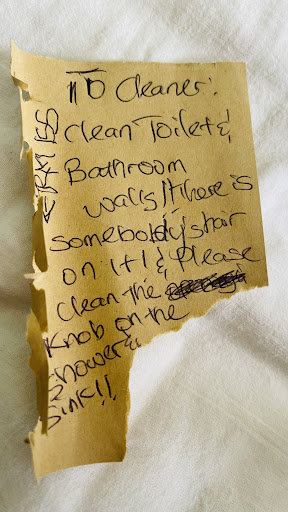 TO Cleaner:
Clean Toilet &
Bathroom
walls!! there is
somebody's hair
on it! & Please
clean the
Knob on the
shower &
sink!!